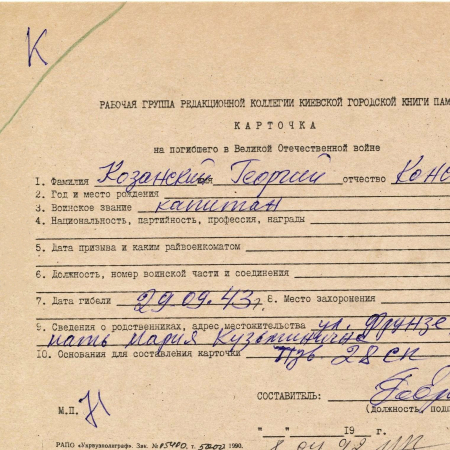 К
РАБОЧАЯ ГРУППА РЕДАКЦИОННОЙ КОЛЛЕГИИ КИЕВСКОЙ ГОРОДСКОЙ КНИГИ ПАМ
КАРТОЧКА
на погибшего в Великой Отечественной войне
1. Фамилия Козанский Георгий отчество Конс
2. Год и место рождения
3. Воинское звание капитан
4. Национальность, партийность, профессия, награды
5. Дата призыва и каким райвоенкоматом
6. Должность, номер воинской части и соединения
7. Дата гибели 29.09.43г. 8. Место захоронения
9. Сведения о родственниках, адрес местожительства ул. Фрунзе
мать Мария Кузьминична
10. Основания для составления карточки 28 сп
СОСТАВИТЕЛЬ:
(должность, подп
М.П.
" " 19 г.
РАПО «Укрвузполиграф». Зак. № 05400, т. 5000 1990.